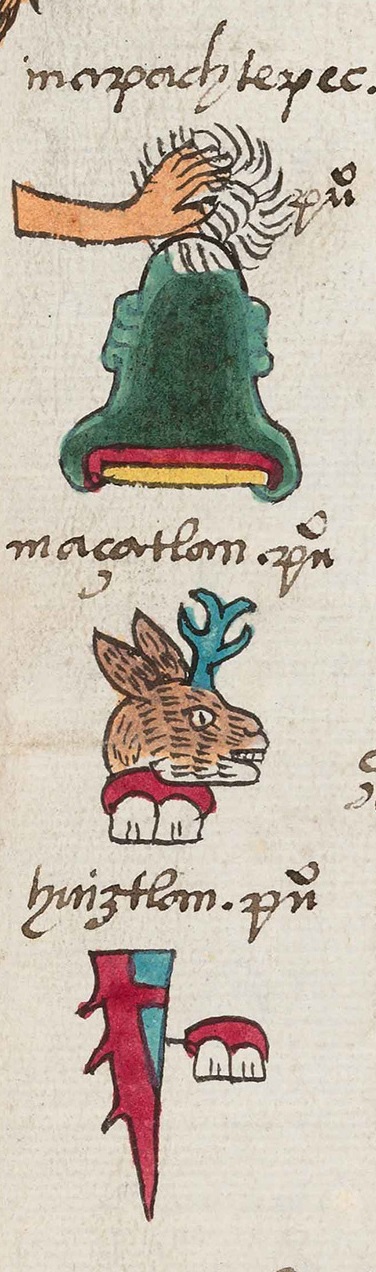 mapachtepec.
pū
maçatlan. pū
huiztlan. pū